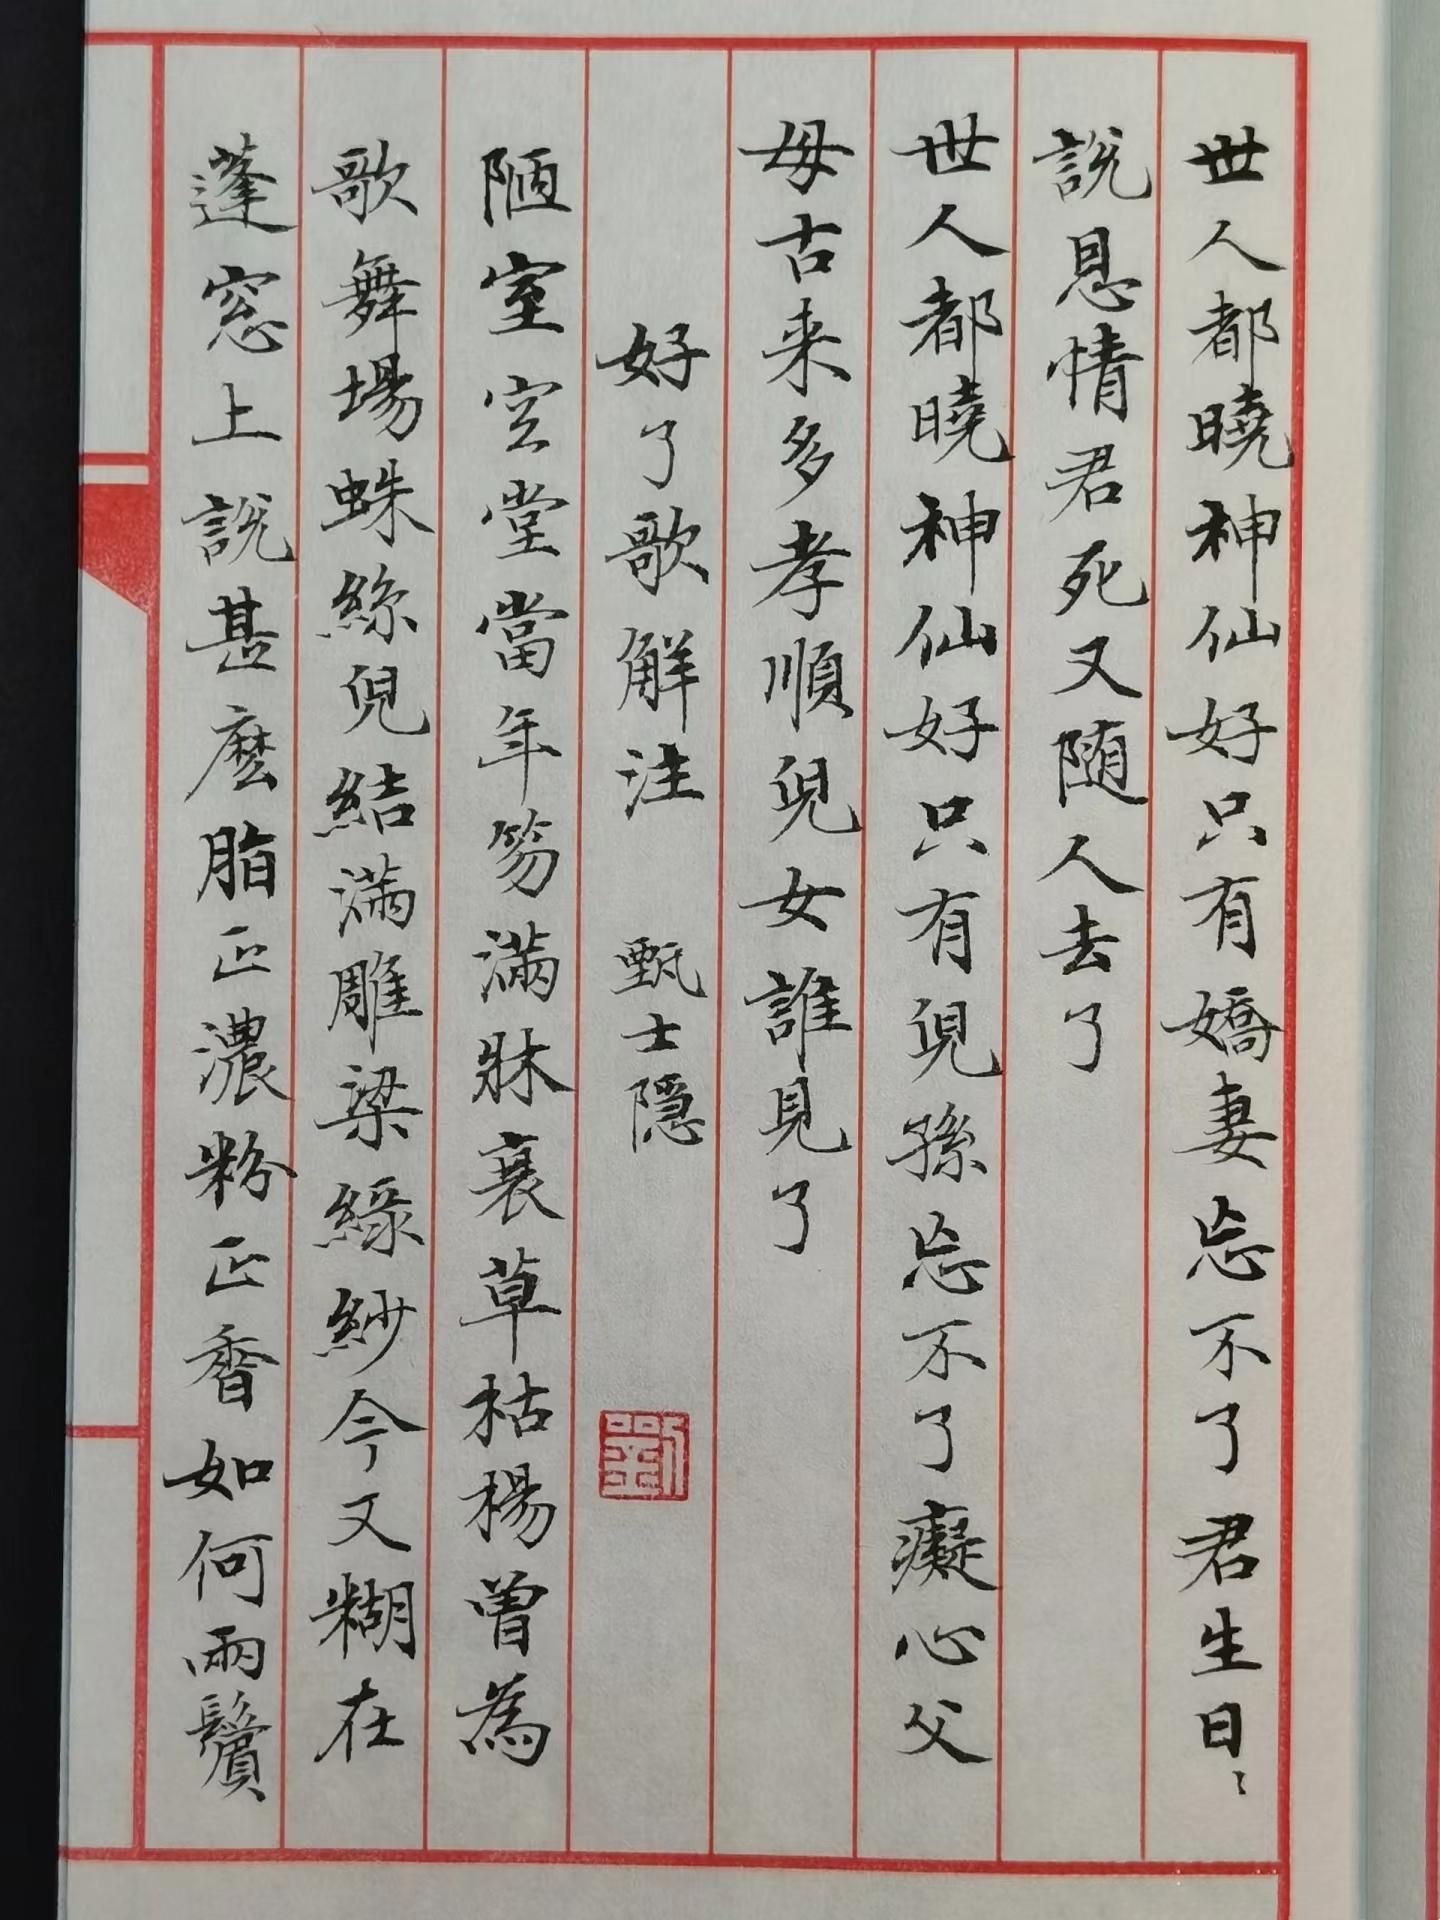 世人都曉神仙好只有嬌妻忘不了君生日〻
說恩情君死又随人去了
世人都曉神仙好只有兒孫忘不了癡心父
母古来多孝順兒女誰見了
好了歌解注 甄士隱
陋室空堂當年笏滿牀衰草枯楊曾為
歌舞場蛛絲兒結滿雕梁綠紗今又糊在
蓬窓上說甚麽脂正濃粉正香如何兩鬢
劉